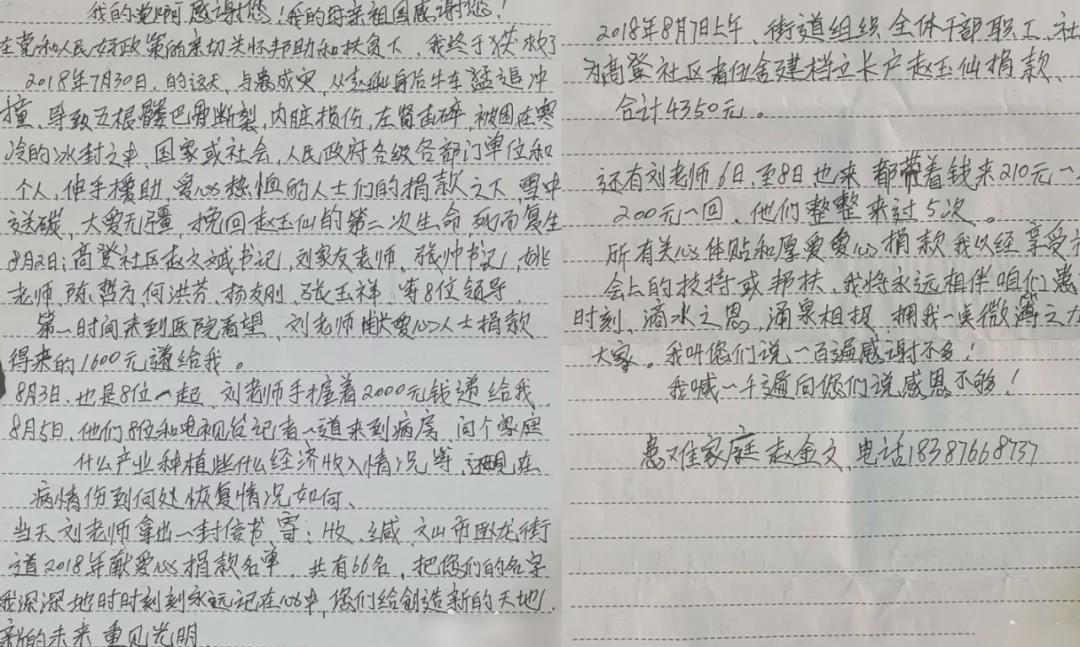 我的党啊感谢您!我的母亲祖国感谢您!
在党和人民好政策的亲切关怀帮助和扶贫下、我终于获救了
2018年7月30日,的这天,与患成灾,从赵玉仙身后牛车猛追冲
撞、导致五根髅巴骨断裂,内脏损伤,左肾击碎,被困在寒
冷的冰封之中、国家或社会,人民政府各级各部门单位和
个人,伸手援助、爱心热恤的人士们的捐款之下、雪中
送碳、大爱无疆,挽回赵玉仙的第二次生命、死而复生
8月2日:高登社区赵文诚书记,刘家友老师、张帅书记,姚
老师、陈哲方何洪芳、杨友刚、张玉祥、等8位领导、
第一时间来到医院看望、刘老师献爱心人士捐款
得来的1600元递给我。
8月3日、也是8位一起、刘老师手握着2000元钱递给我
8月5日、他们8位和电视台记者一道来到病房、问个家庭
什么产业种植些什么经济收入情况等、还现在
病情伤到何处恢复情况如何、
当天刘老师拿出一封信书、写:收、缄、文山市卧龙街
道2018年献爱心捐款名单、共有66名、把您们的名字
我深深地时时刻刻永远记在心中,您们给创造新的天地,
新的未来、重见光明
2018年8月7日上午、街道组织全体干部职工、社
为高登社区者伍舍建档立卡户赵玉仙捐款、
合计4350元。
还有刘老师6日、至8日也来都带着钱来210元一
200元一回、他们整整来过5次。
所有关心体贴和厚爱爱心捐款我以经享受
会上的扶持或帮扶、我将永远相伴咱们患
时刻、滴水之恩、涌泉相报、拥我一点微薄之力
大家。我叫您们说一百遍感谢不多!
我喊一千遍向您们说感恩不够!
患难家庭赵金文、电话18387668737